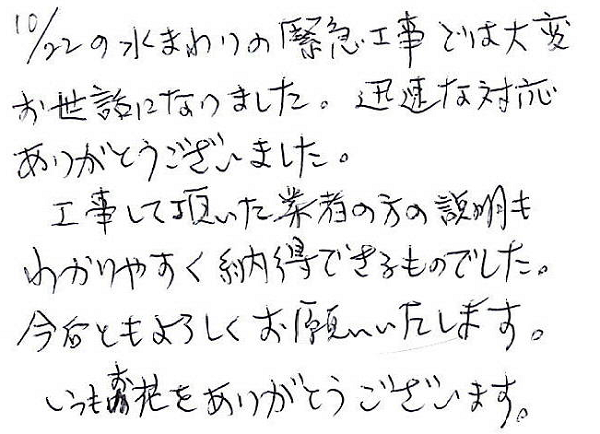 10/22の水まわりの緊急工事では大変
お世話になりました。迅速な対応
ありがとうございました。
工事して頂いた業者の方の説明も
わかりやすく納得できるものでした。
今后ともよろしくお願いいたします。
いつもお花をありがとうございます。